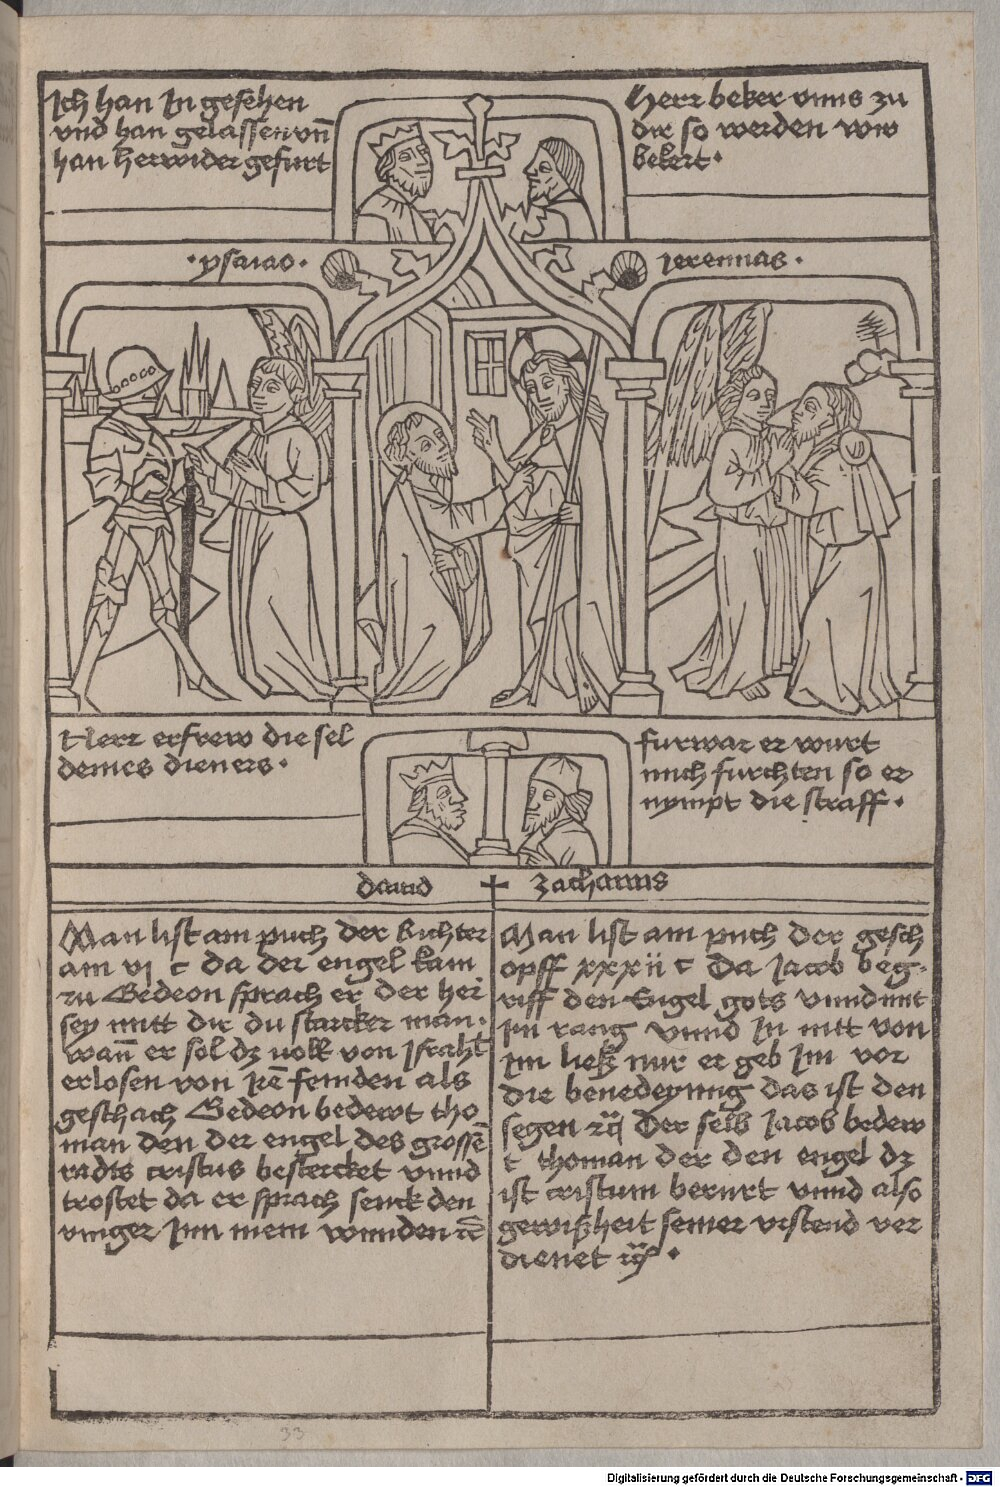 Ich han In gesehen
vnd han gelassen vn̄
han herwider gefurt
Herr beker vnns zu
dir so werden wir
bekert·
·ysaias·
Jeremias·
Herr erfrew die sel
deines dieners·
furwar er wurt
mich furchten so er
nympt die straff·
dauid
zacharius
Man list am puch der Richter
am vj c da der engel kam
zu Gedeon sprach er der her
sey mitt dir du starcker man·
wan̄ er sol dz volk von Jsrahel
erlosen von Jrē feinden als
geschach Gedeon bedewt tho
man den der engel des grossē
radts cristus bestercket vnnd
trostet da er sprach senck den
vinger Jnn mein wunden ꝛc̄
Man list am puch der gesch
opff xxxii c Da Jacob beg·
riff den Engel gots vnnd mit
Im rang vnnd In nitt von
Im ließ nur er geb Im vor
die benedeyung das ist den
segen ꝛc Der selb Jacob bedew
t thoman der den engel dz
ist cristum berurt vnnd also
gewißheit seiner vrstend ver
dienet ꝛc·
33
Digitalisierung gefördert durch die Deutsche Forschungsgemeinschaft · DFG